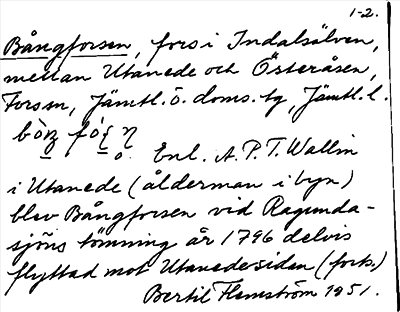 1-2.
Bångforsen, fors i Indalsälven,
mellan Utanede och Österåsen,
Fors sn, Jämtl. ö. doms. tg, Jämtl. l.
Enl. A. P. T. Wallin
i Utanede (ålderman i byn)
blev Bångforsen vid Ragunda-
sjöns tömning år 1796 delvis
flyttad mot Utanedesidan (forts.)
Bertil Flemström 1951.